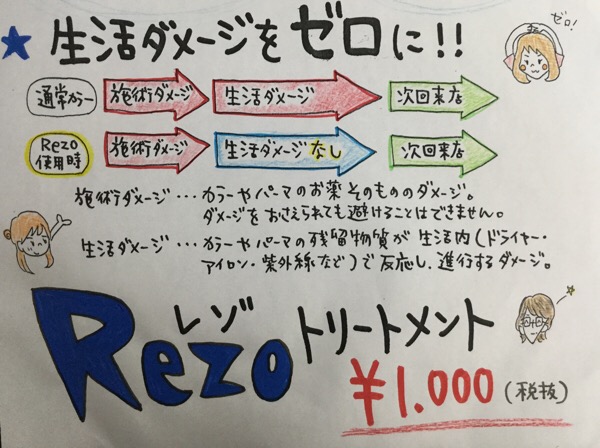 ★生活ダメージをゼロに!!
ゼロ!
通常カラー 施術ダメージ 生活ダメージ 次回来店
Rezo使用時 施術ダメージ 生活ダメージなし 次回来店
施術ダメージ…カラーやパーマのお薬そのもののダメージ。
ダメージをおさえられても避けることはできません。
生活ダメージ…カラーやパーマの残留物質が生活内(ドライヤー・
アイロン・紫外線など)で反応し、進行するダメージ。
レゾ
Rezoトリートメント
¥1.000(税抜)